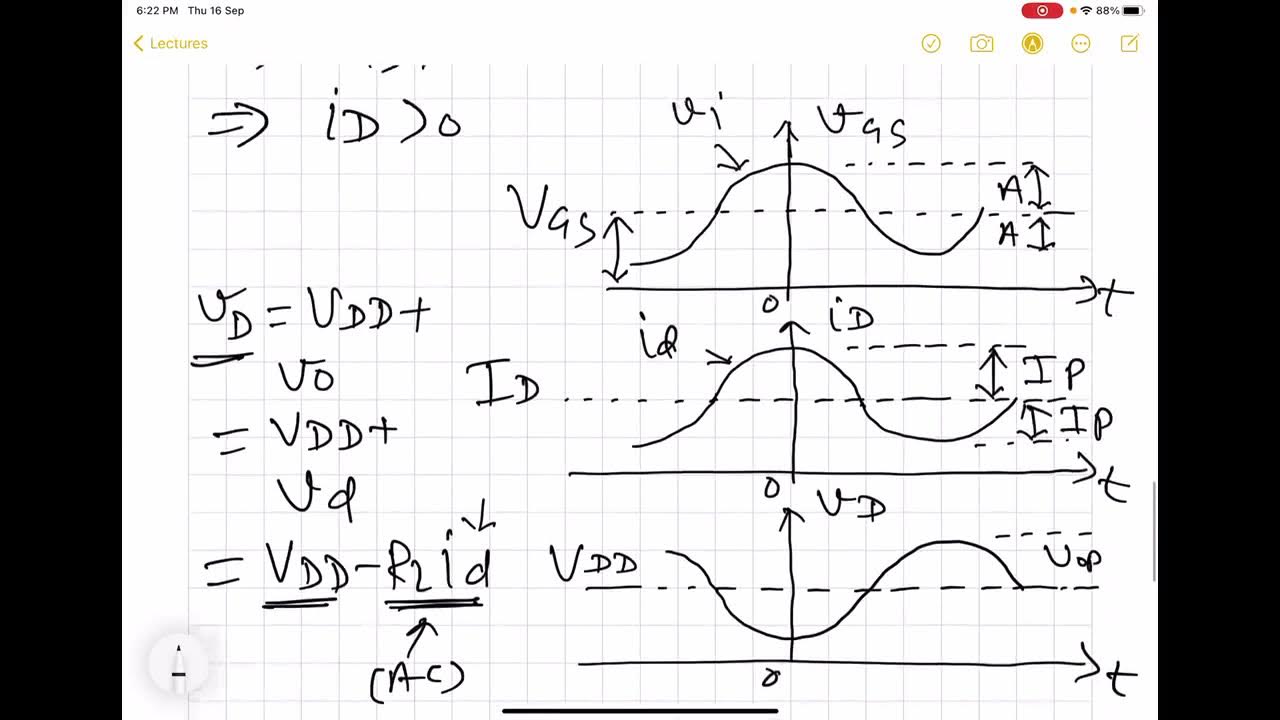 6:22 PM Thu 16 Sep
88%
Lectures
⇒ iD > 0
vi
vGS
VGS
A
A
0
t
vD = VDD +
vo
= VDD +
vd
= VDD - RLid
(A-C)
iD
id
ID
IP
IP
0
t
vD
VDD
vop
0
t